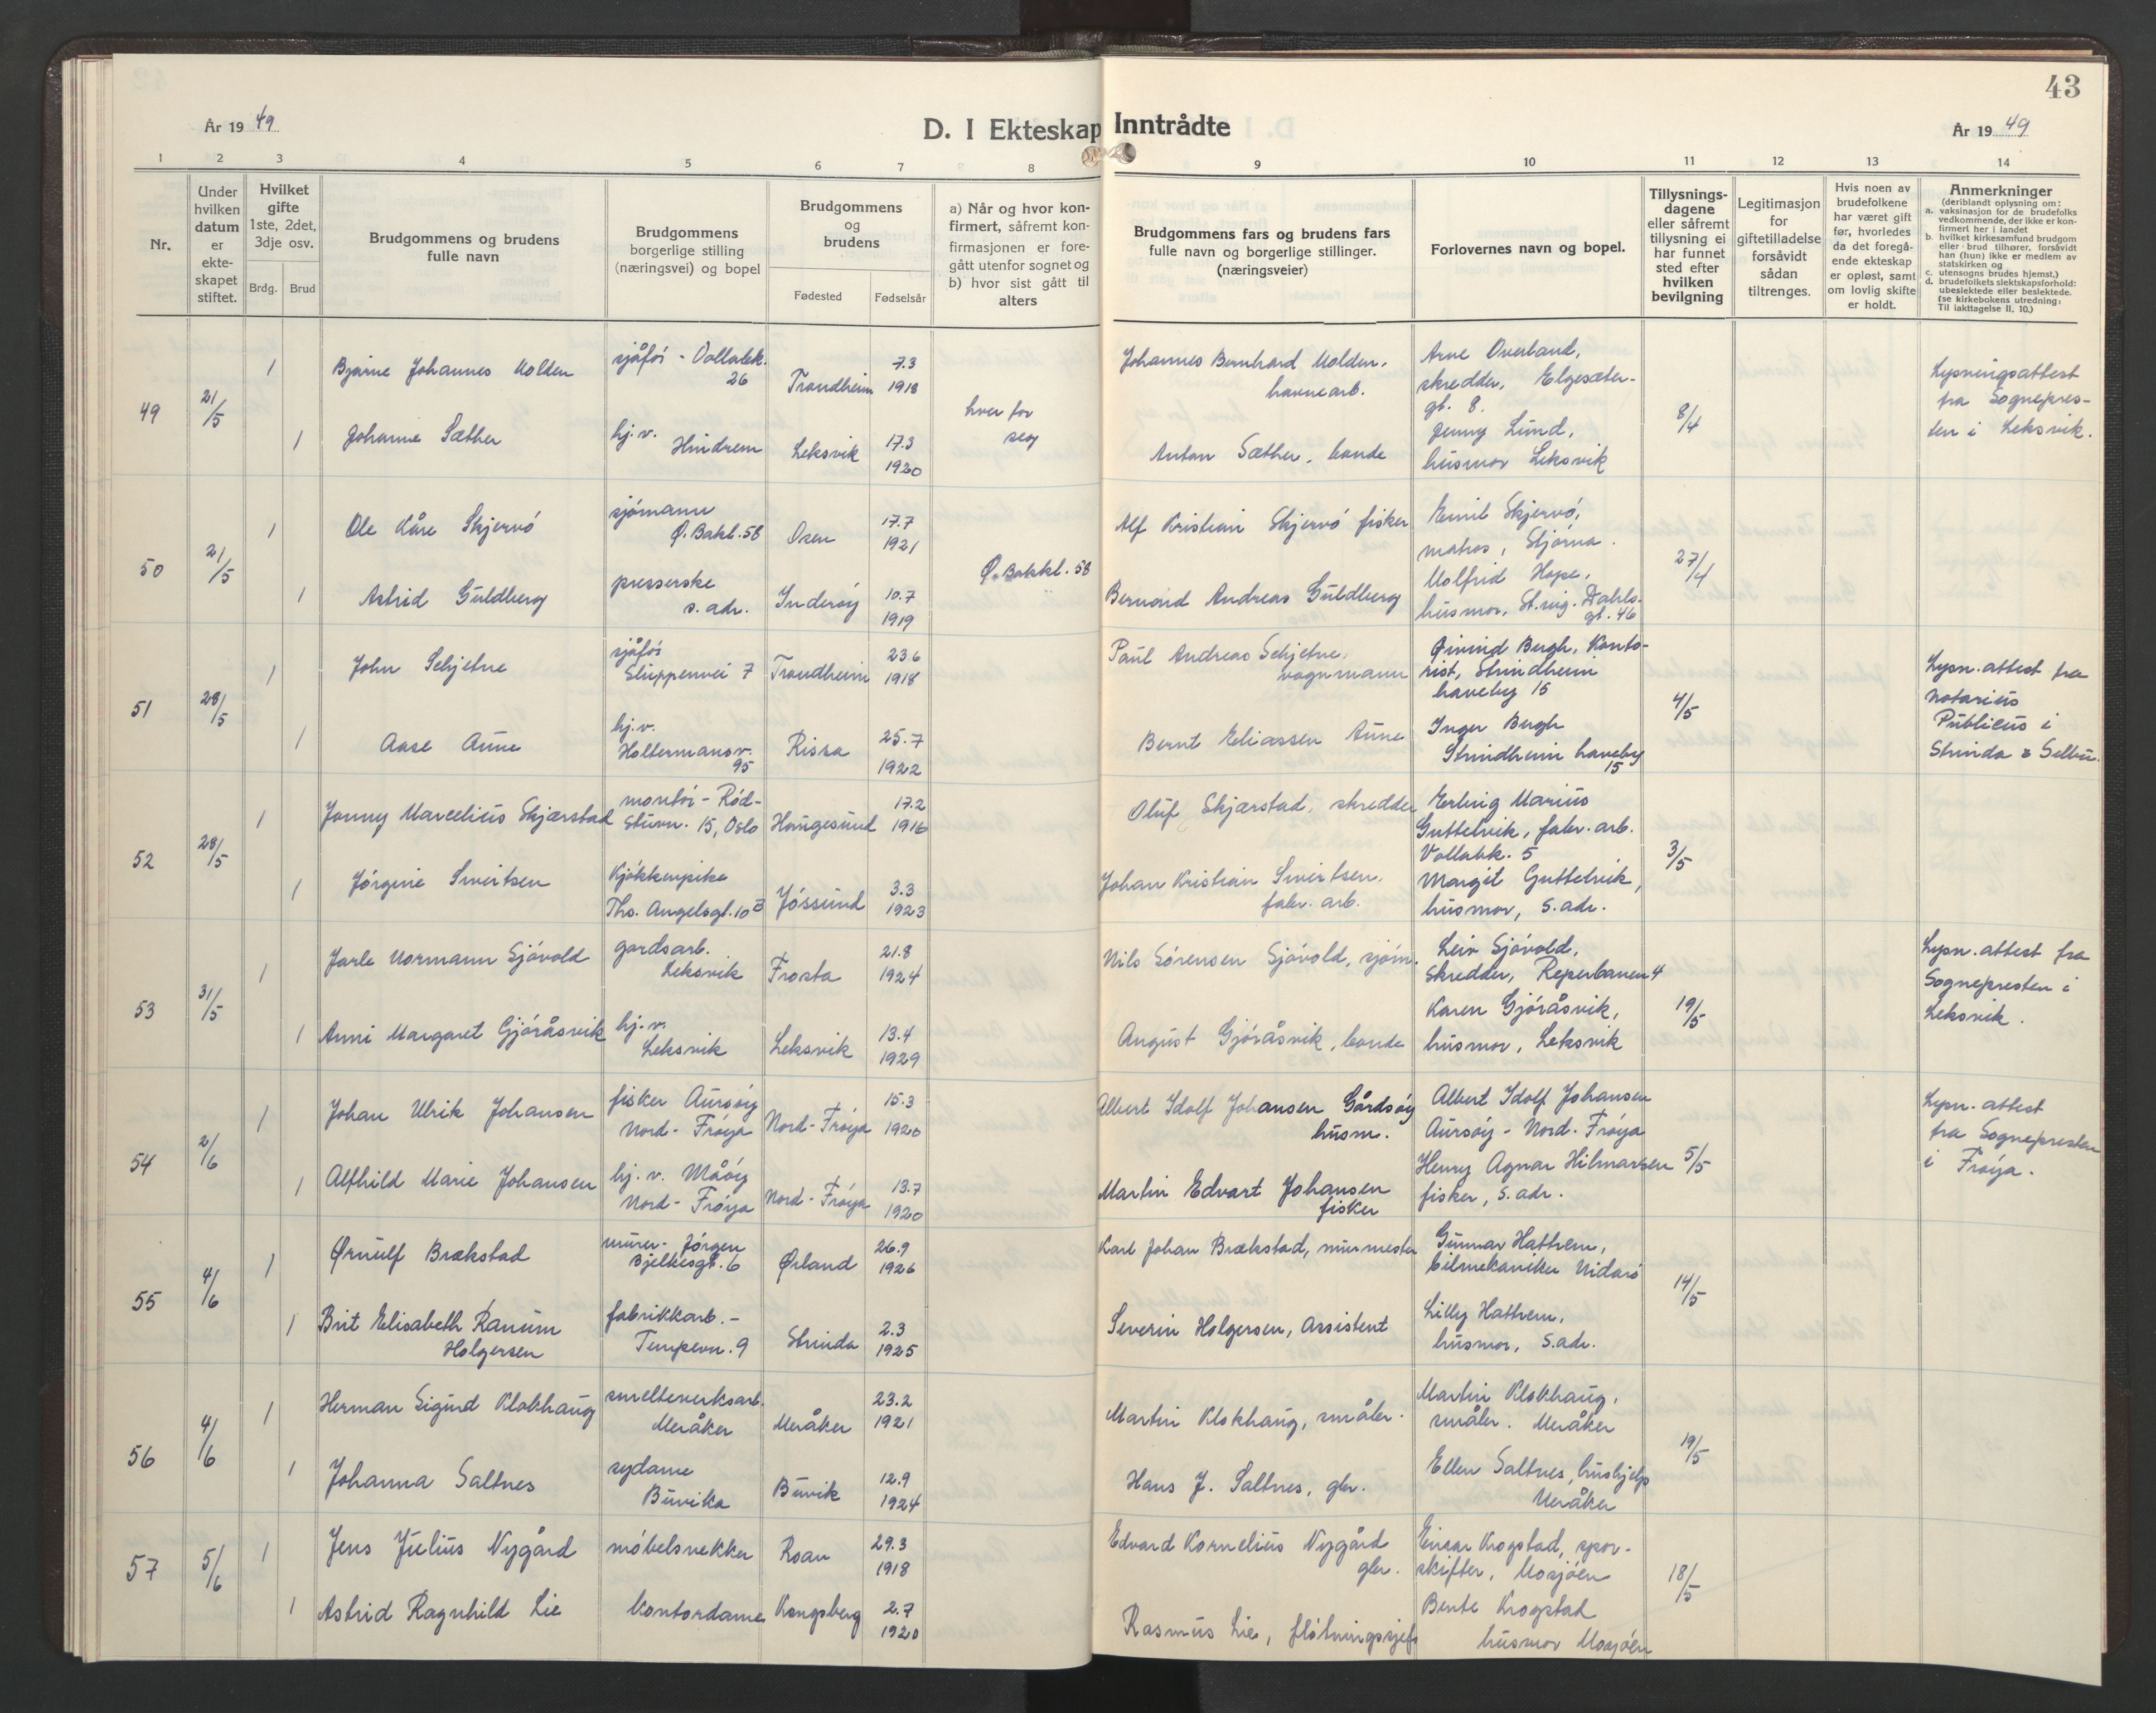 43
År 1949
D. I Ekteskap Inntrådte
År 1949
1 2 3 4 5 6 7 8 9 10 11 12 13 14
Nr.
Under hvilken datum er ekte-skapet stiftet.
Hvilket gifte 1ste, 2det, 3dje osv.
Brdg. Brud
Brudgommens og brudens fulle navn
Brudgommens borgerlige stilling (næringsvei) og bopel
Brudgommens og brudens
Fødested Fødselsår
a) Når og hvor kon-
firmert, såfremt kon-
firmasjonen er fore-
gått utenfor sognet og
b) hvor sist gått til
alters
Brudgommens fars og brudens fars
fulle navn og borgerlige stillinger.
(næringsveier)
Forlovernes navn og bopel.
Tillysnings-
dagene
eller såfremt
tillysning ei
har funnet
sted efter
hvilken
bevilgning
Legitimasjon
for
giftetilladelse
forsåvidt
sådan
tiltrenges.
Hvis noen av
brudefolkene
har været gift
før, hvorledes
da det foregå-
ende ekteskap
er opløst, samt
om lovlig skifte
er holdt.
Anmerkninger
(deriblandt oplysning om:
a. vaksinasjon for de brudefolks
vedkommende, der ikke er kon-
firmert her i landet
b. hvilket kirkesamfund brudgom
eller brud tilhører, forsåvidt
han (hun) ikke er medlem av
statskirken og
c. utensogns brudes hjemst.)
d. brudefolkets slektskapsforhold:
ubeslektede eller beslektede.
(se kirkebokens utredning:
Til iakttagelse II. 10.)
49 21/5
1 Bjarne Johannes Molden sjåfør - Vollabk. 26 Trondheim 7.3 1918
hver for seg
Johannes Bernhard Molden, havnearb.
Arne Overland,
skredder, Elgesæter-
gt. 8.
8/4
Lysningsattest
fra Sognepres-
ten i Leksvik.
1 Johanne Sæther hj.v. Hindrem Leksvik 17.3 1920
Anton Sæther, bonde
Jenny Lund,
husmor Leksvik
50 21/5
1 Ole Kåre Skjervö sjömann Ø. Bakl. 58 Osen 17.7 1921
Ø. Bakkl. 58
Alf Kristian Skjervö fisker
Emil Skjervö,
matros, Stjörna.
27/4
1 Astrid Guldberg presserske s. adr. Inderöy 10.7 1919
Bernard Andreas Guldberg
Molfrid Hope,
husmor, St. ing. Dahls.
gt. 46
51 28/5
1 John Schjetne sjåför Sluppenvei 7 Trondheim 23.6 1918
Paul Andreas Schjetne, vognmann
Øivind Bugh, Konto-
rist, Strindheim
haveby 15
4/5
Lysn. attest fra
Notarius
Publicus i
Strinda & Selbu.
1 Aase Aune hj.v. Holtermansv. 95 Rissa 25.7 1922
Bernt Eliassen Aune
Inger Bugh
Strindheim haveby
15
52 28/5
1 Jonny Marcelius Skjærstad montör - Röd-
stuvn. 15, Oslo Haugesund 17.2 1916
Oluf Skjærstad, skredder
Erling Marius
Guttelvik, fabr. arb.
Vollabk. 5
3/5
1 Jörgine Sivertsen Kjökkenpike
Ths. Angelsgt. 10 B Jössund 3.3 1923
Johan Kristian Sivertsen, fabr. arb.
Margit Guttelvik,
husmor, s. adr.
53 31/5
1 Jarle Normann Sjövold gardsarb. Leksvik Frosta 21.8 1924
Nils Sörensen Sjövold, sjöm.
Leiv Sjövold,
skredder, Reperbanen 4
19/5
Lysn. attest fra
Sognepresten i
Leksvik.
1 Anni Margaret Gjöråsvik hj.v. Leksvik Leksvik 13.4 1929
August Gjöråsvik, bonde
Karen Gjöråsvik,
husmor, Leksvik
54 2/6
1 Johan Ulrik Johansen fisker Aursöy
Nord-Fröya Nord-Fröya 15.3 1920
Albert Idolf Johansen Gårdsöy husm.
Albert Idolf Johansen
Aursöy - Nord-Fröya
5/5
Lysn. attest
fra Sognepresten
i Fröya.
1 Alfhild Marie Johansen hj. v. Måöy
Nord-Fröya Nord-Fröya 13.7 1920
Martin Edvart Johansen fisker
Henry Agnar Hilmarsen
fisker, s. adr.
55 4/6
1 Ørnulf Brækstad murer - Jörgen
Bjelkesgt. 6 Ørland 26.9 1926
Karl Johan Brækstad, murmester
Gunnar Hattrem,
bilmekaniker Nidarö
14/5
1 Brit Elisabeth Ranum
Holgersen fabrikkarb. -
Tempevn. 9 Strinda 2.3 1925
Severin Holgersen, Assistent
Lilly Hattrem,
husmor, s. adr.
56 4/6
1 Herman Sigurd Klokhaug smelteverksarb.
Meråker Meråker 23.2 1921
Martin Klokhaug, småbr.
Martin Klokhaug,
småbr. Meråker
19/5
1 Johanna Saltnes sydame
Buvika Buvik 12.9 1924
Hans J. Saltnes, gbr.
Ellen Saltnes, hushjelp
Meråker
57 5/6
1 Jens Julius Nygård möbelsnekker Roan 29.3 1918
Edvard Kornelius Nygård gbr.
Einar Krogstad, spor-
skifter, Mosjöen
18/5
1 Astrid Ragnhild Lie kontordame Kongsberg 2.7 1920
Rasmus Lie, flötningssjef
Bente Krogstad
husmor Mosjöen